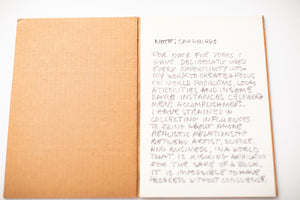 NOTE: CARDBIRDS
FOR OVER FIVE YEARS I
HAVE DELIBERATELY USED
EVERY OPPORTUNITY WITH
MY WORK TO CREATE A FOCUS
ON WORLD PROBLEMS, LOCAL
ATROCITIES AND IN SOME
RARE INSTANCES CELEBRATE
MEN'S ACCOMPLISHMENT.
I HAVE STRAINED IN
COLLECTING INFLUENCES
TO BRING ABOUT A MORE
REALISTIC RELATIONSHIP
BETWEEN ARTIST, SCIENCE,
AND BUSINESS, IN A WORLD
THAT IS RISKING ANNIHILATION
FOR THE SAKE OF A BUCK.
IT IS IMPOSSIBLE TO HAVE
PROGRESS WITHOUT CONSCIENCE.